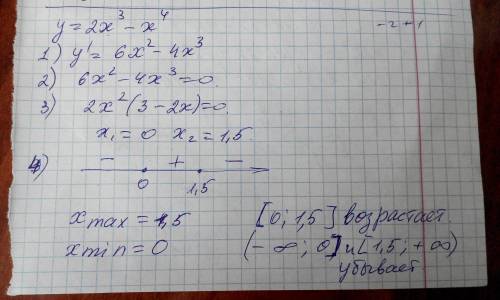 y = 2x³ - x⁴
-2+1
1) y' = 6x² - 4x³
2) 6x² - 4x³ = 0.
3) 2x²(3 - 2x) = 0.
x₁ = 0 x₂ = 1,5.
4) - + -
0 1,5
xmax = 1,5 [0; 1,5] возрастает.
xmin = 0 (-∞; 0] и [1,5; +∞)
убывает